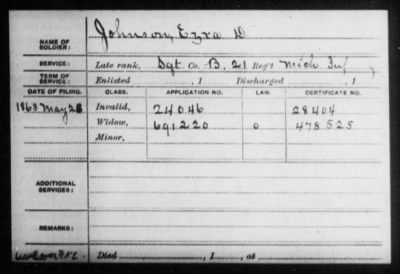 NAME OF SOLDIER: Johnson, Ezra D
SERVICE: Late rank, Sgt. Co. B, 21 Reg't Mich Inf
TERM OF SERVICE: Enlisted , 1 Discharged , 1
DATE OF FILING. CLASS. APPLICATION NO. LAW. CERTIFICATE NO.
1863 May 28 Invalid, 24046 28404
Widow, 691220 0 478525
Minor,
ADDITIONAL SERVICES:
REMARKS:
Died , 1 , at